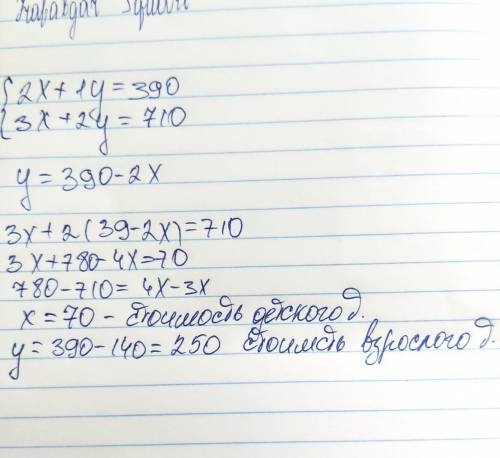 { 2x + 1y = 390
{ 3x + 2y = 710
y = 390 - 2x
3x + 2(39 - 2x) = 710
3x + 780 - 4x = 70
780 - 710 = 4x - 3x
x = 70 - стоимость детского д.
y = 390 - 140 = 250 стоимсть взрослого д.